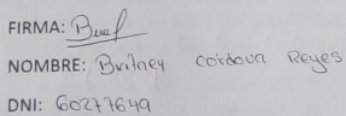 FIRMA:
NOMBRE: Britney cordova Reyes
DNI: 60277649